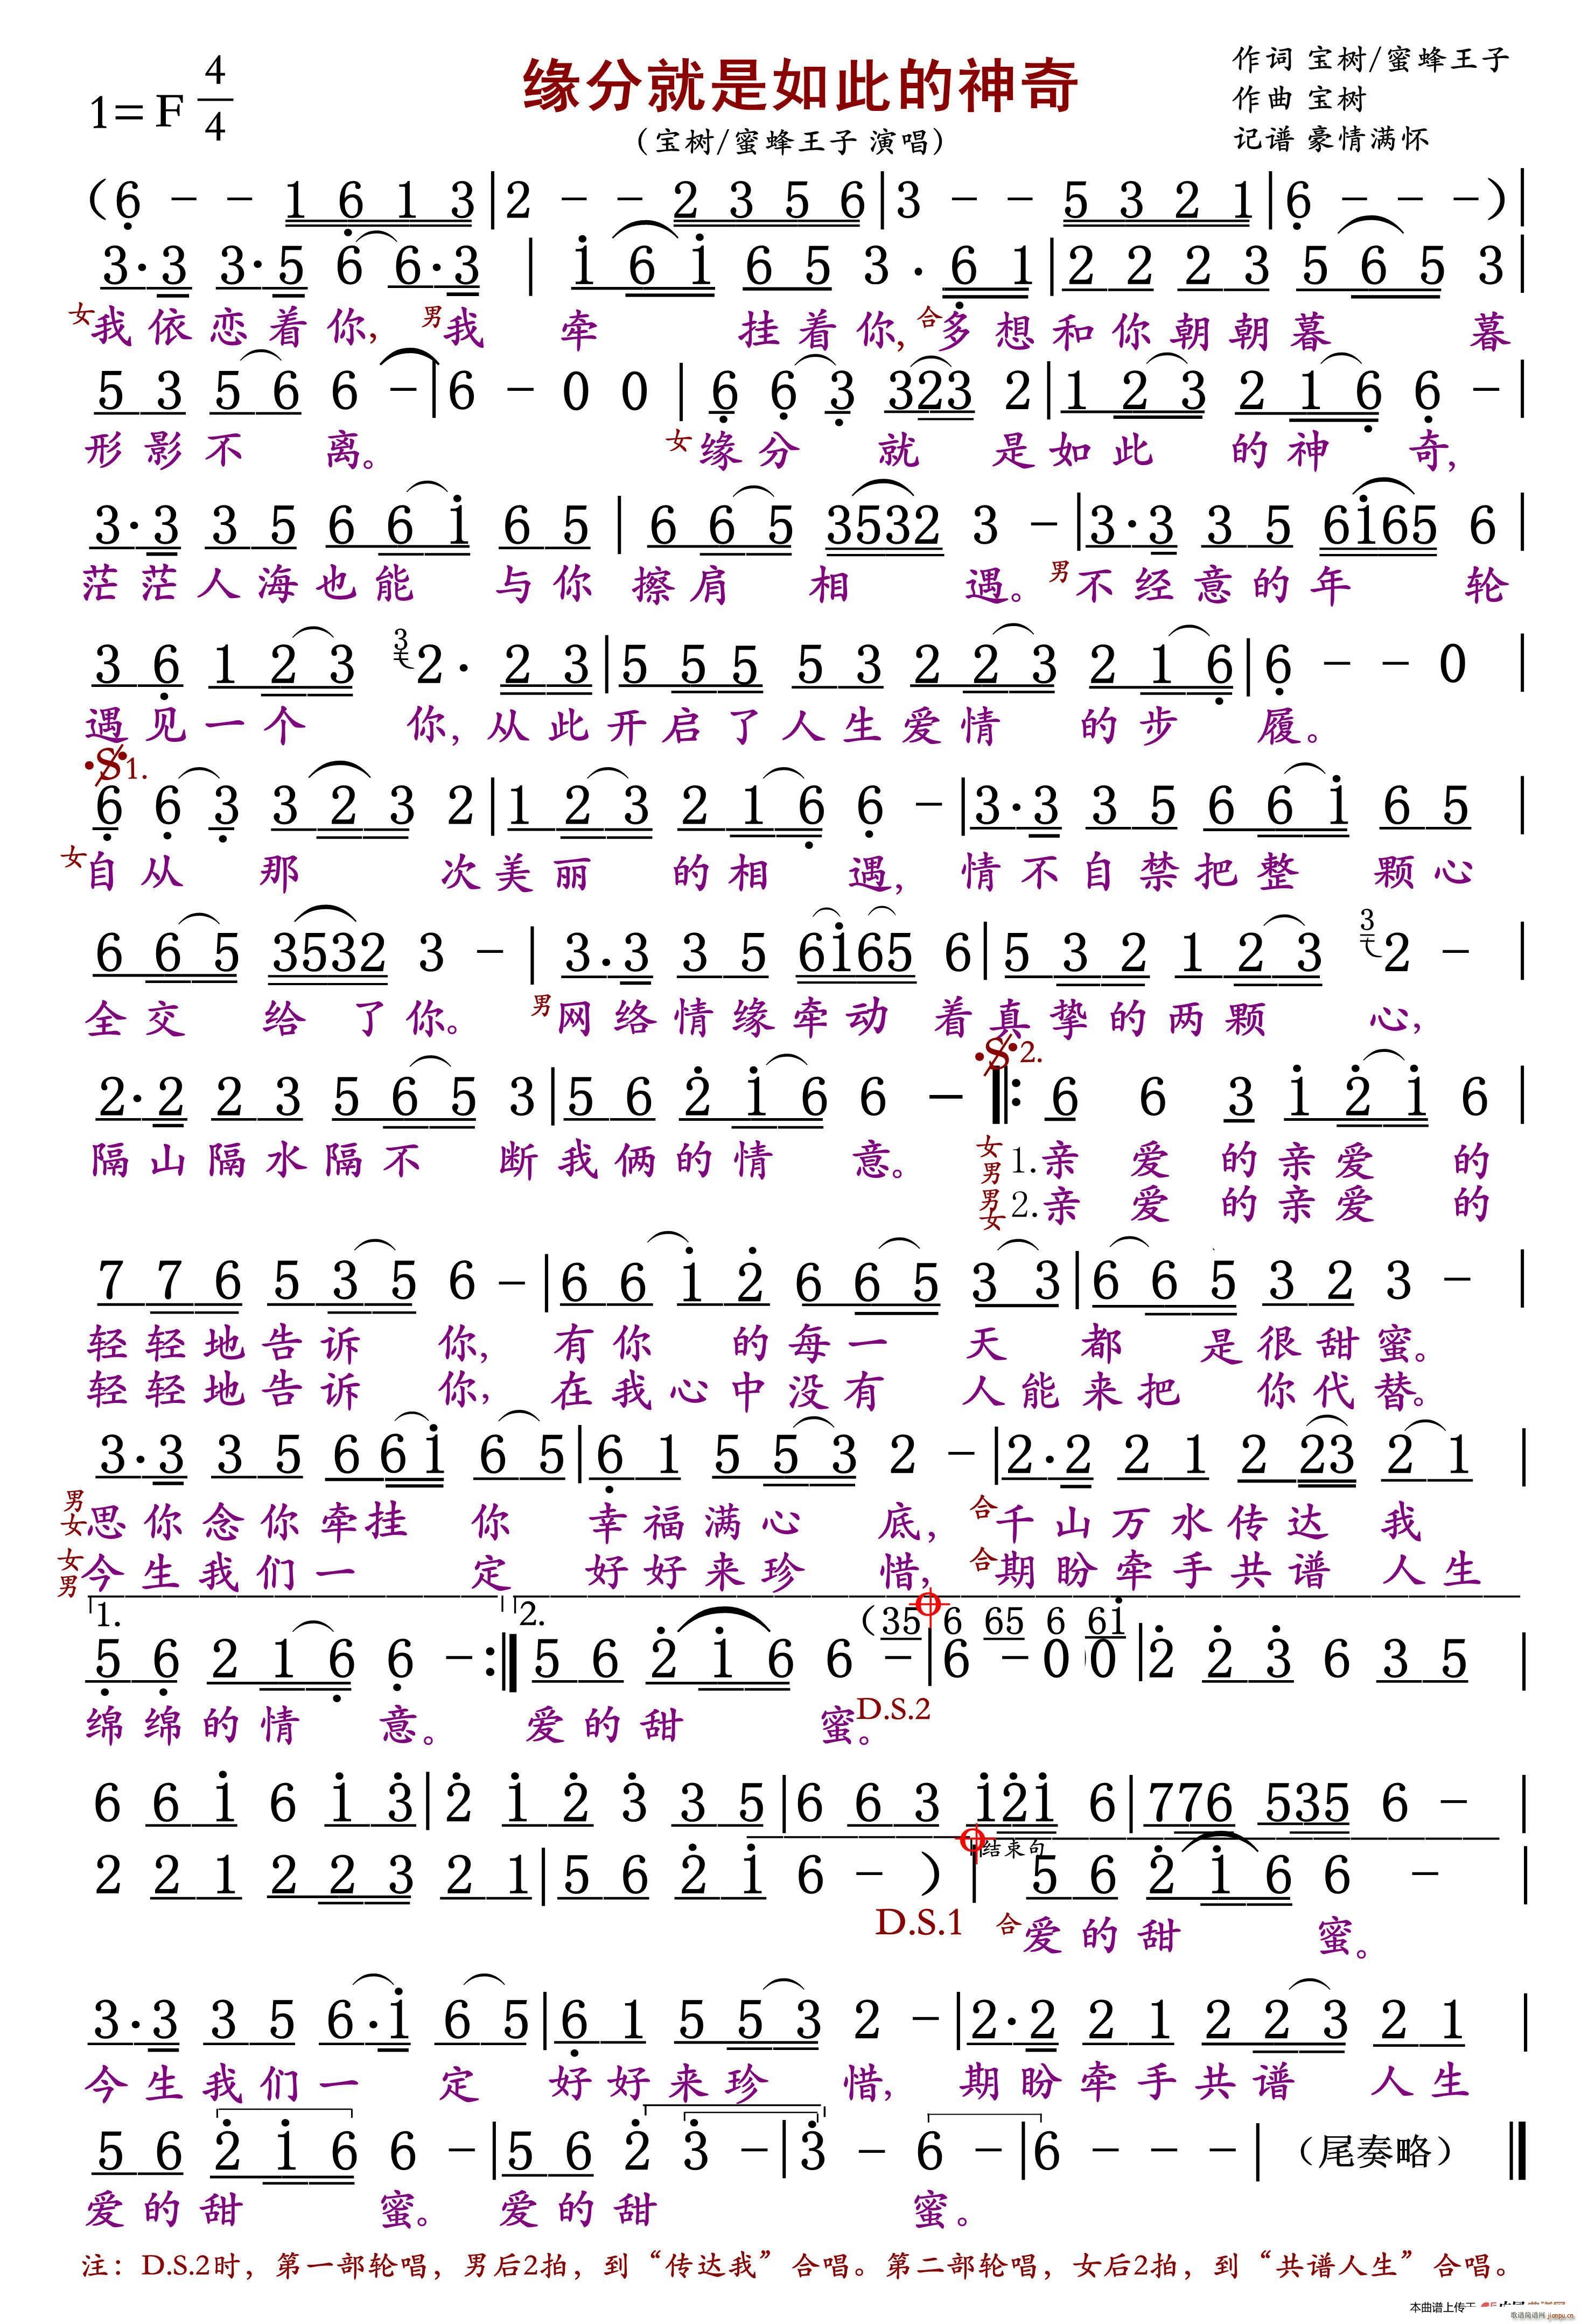 1=F 4/4
缘分就是如此的神奇
（宝树/蜜蜂王子 演唱）
作词 宝树/蜜蜂王子
作曲 宝树
记谱 豪情满怀
（6 - - 1 6 1 3|2 - - 2 3 5 6|3 - - 5 3 2 1|6 - - -）|
3·3 3·5 6 6·3 | i 6 i 6 5 3 · 6 1|2 2 2 3 5 6 5 3|
女我依恋着你，男我 牵 挂着你，合多想和你朝朝暮 暮
5 3 5 6 6 -|6 - 0 0 |6 6 3 323 2|1 2 3 2 1 6 6 -|
形影不 离。 女缘分 就 是如此 的神 奇，
3·3 3 5 6 6 i 6 5 |6 6 5 3532 3 -|3·3 3 5 6i65 6|
茫茫人海也能 与你 擦肩 相 遇。男不经意的年 轮
3 6 1 2 3 3 2· 2 3|5 5 5 5 3 2 2 3 2 1 6|6 - - 0 |
遇见一个 你，从此开启了人生爱情 的步 履。
𝄋1.
6 6 3 3 2 3 2|1 2 3 2 1 6 6 -|3·3 3 5 6 6 i 6 5 |
女自从 那 次美丽 的相 遇，情不自禁把整 颗心
6 6 5 3532 3 - |3·3 3 5 6i65 6|5 3 2 1 2 3 3 2 - |
全交 给 了你。 男网络情缘牵动 着真挚的两颗 心，
𝄋2.
2·2 2 3 5 6 5 3|5 6 2 i 6 6 - |: 6 6 3 i 2 i 6 |
隔山隔水隔不 断我俩的情 意。 女男1.亲 爱 的亲爱 的
男女2.亲 爱 的亲爱 的
7 7 6 5 3 5 6 -|6 6 i 2 6 6 5 3 3|6 6 5 3 2 3 - |
轻轻地告诉 你，有你 的每一 天 都 是很甜蜜。
轻轻地告诉 你，在我心中没有 人能来把 你代替。
3·3 3 5 6 6 i 6 5|6 1 5 5 3 2 -|2·2 2 1 2 23 2 1 |
男女思你念你牵挂 你 幸福满心 底，合千山万水传达 我
女男今生我们一 定 好好来珍 惜，合期盼牵手共谱 人生
1. 2. （35 6 65 6 6i
5 6 2 1 6 6 - :|5 6 2 i 6 6 -|6 - 0 0|2 2 3 6 3 5 |
绵绵的情 意。 爱的甜 蜜。D.S.2
6 6 i 6 i 3|2 i 2 3 3 5|6 6 3 i2i 6|776 535 6 - |
结束句
2 2 1 2 2 3 2 1|5 6 2 i 6 - ）| 5 6 2 i 6 6 - |
D.S.1 合爱的甜 蜜。
3·3 3 5 6·i 6 5|6 1 5 5 3 2 -|2·2 2 1 2 2 3 2 1 |
今生我们一 定 好好来珍 惜，期盼牵手共谱 人生
5 6 2 i 6 6 -|5 6 2 3 -|3 - 6 -|6 - - -|（尾奏略）‖
爱的甜 蜜。爱的甜 蜜。
注：D.S.2时，第一部轮唱，男后2拍，到“传达我”合唱。第二部轮唱，女后2拍，到“共谱人生”合唱。
本曲谱上传于
歌谱简谱网 jianpu.cn